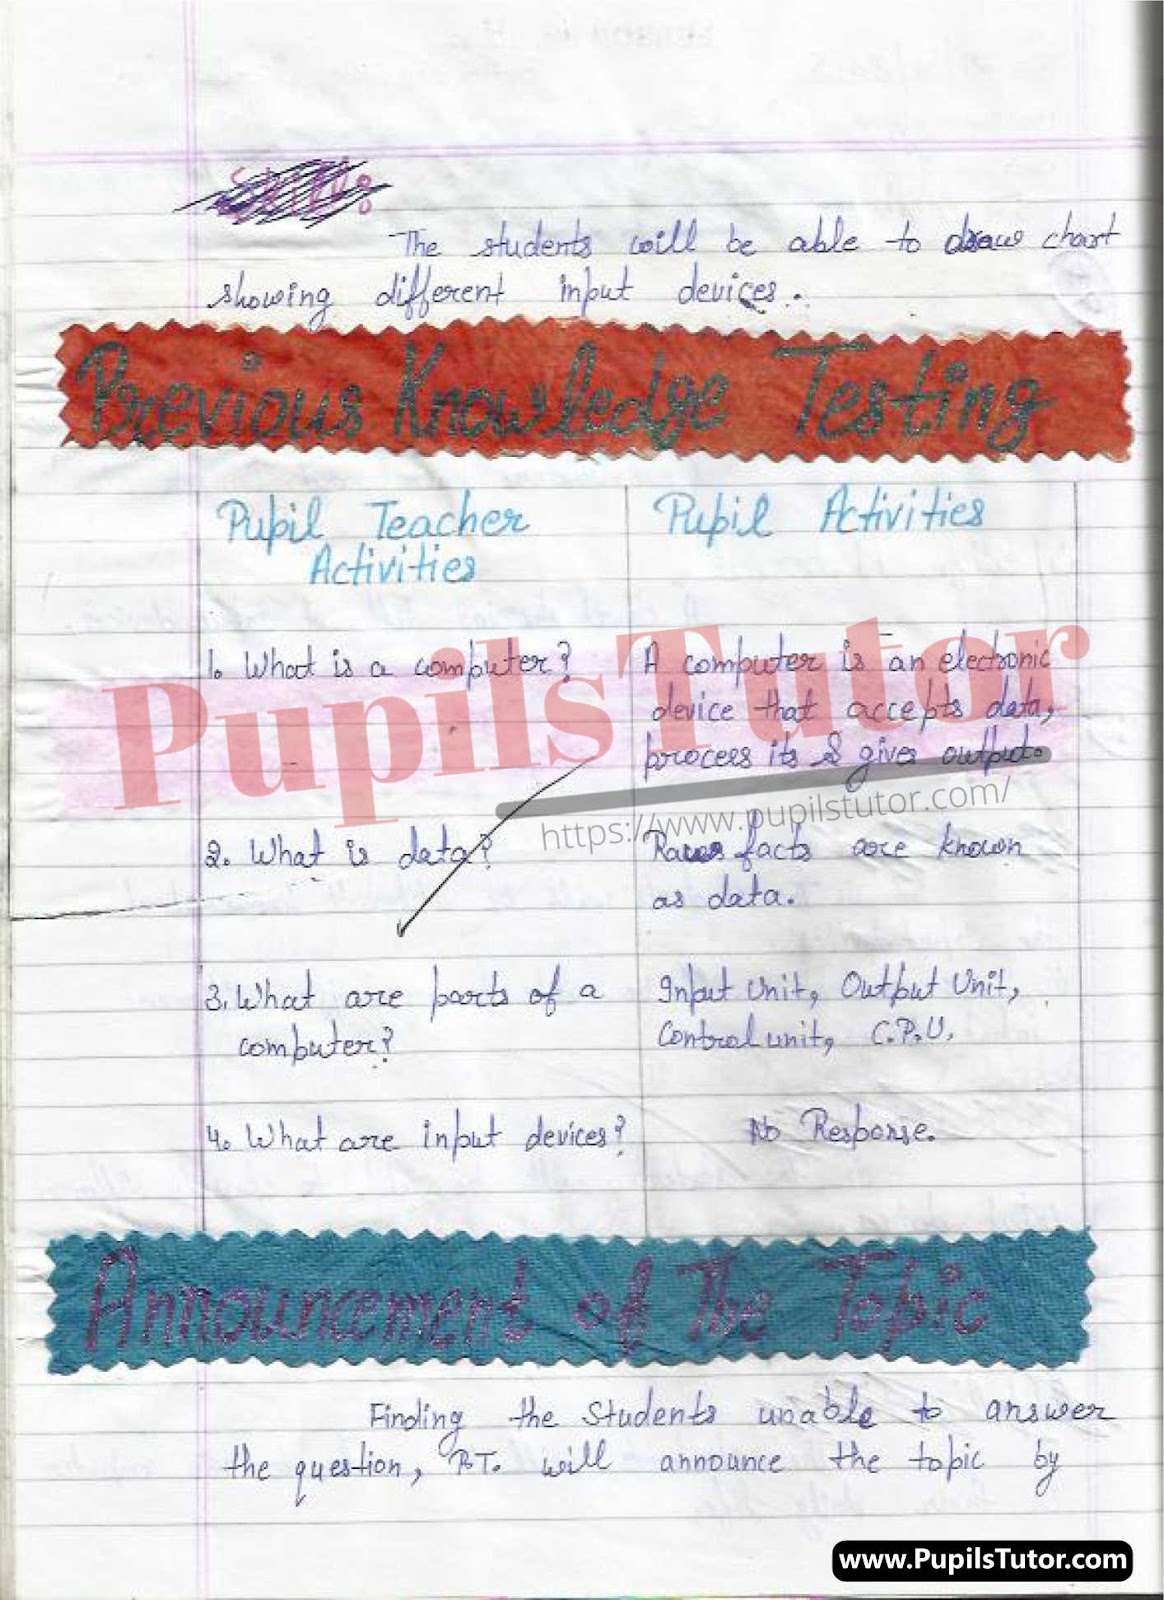 Skill:
The students will be able to draw chart
showing different input devices.
Previous Knowledge Testing
Pupil Teacher
Activities
Pupil Activities
1. What is a computer?
A computer is an electronic
device that accepts data,
process its & gives output.
2. What is data?
Raw facts are known
as data.
3. What are parts of a
computer?
Input Unit, Output Unit,
Control unit, C.P.U.
4. What are input devices?
No Response.
Announcement of The Topic
Finding the students unable to answer
the question, P.T. will announce the topic by
PupilsTutor
https://www.pupilstutor.com/
www.PupilsTutor.com